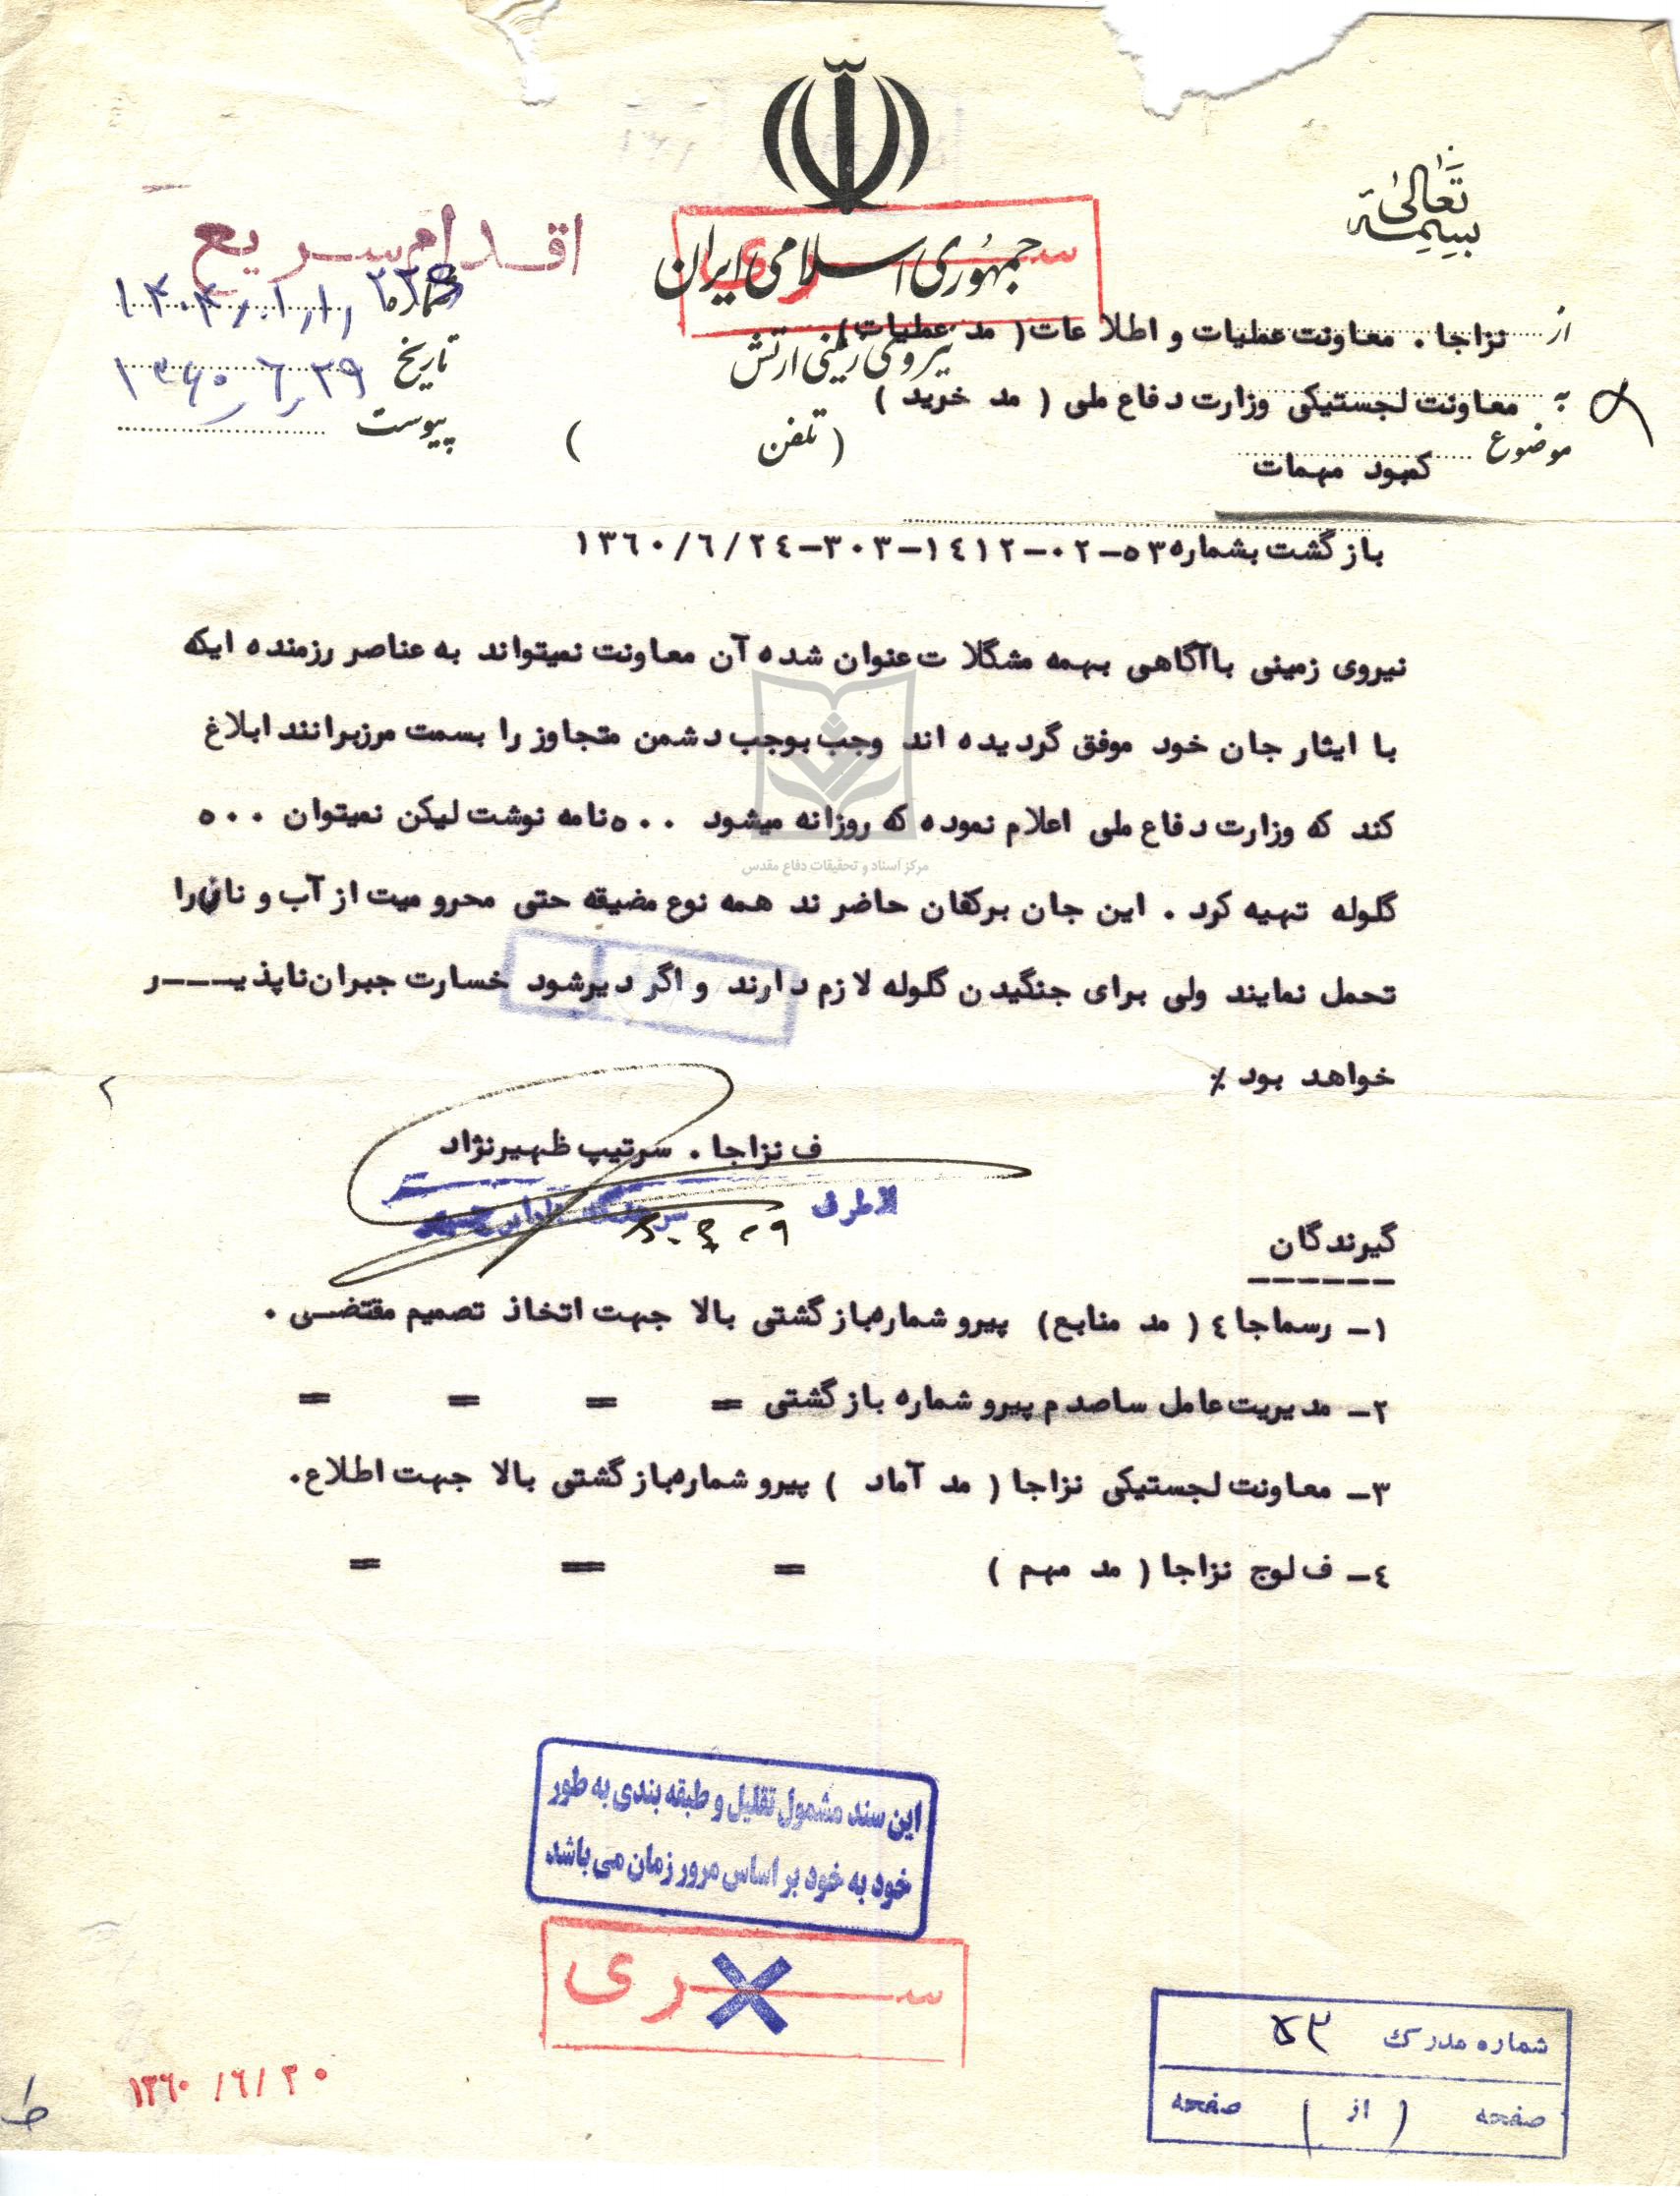 بسمه تعالی
جمهوری اسلامی ایران
نیروی زمینی ارتش
(تلفن )
اقدام سریع
سری
شماره
تاریخ ۱۳۶۰/۶/۲۹
پیوست
از نزاجا . معاونت عملیات و اطلاعات ( مد عملیات )
به معاونت لجستیکی وزارت دفاع ملی ( مد خرید )
موضوع کمبود مهمات
بازگشت بشماره ۵۳-۰۲-۱۴۱۲-۳۰۳-۱۳۶۰/۶/۲۴
نیروی زمینی باآگاهی بهمه مشکلات عنوان شده آن معاونت نمیتواند به عناصر رزمنده ایکه
با ایثار جان خود موفق گردیده اند وجب بوجب دشمن متجاوز را بسمت مرزبرانند ابلاغ
کند که وزارت دفاع ملی اعلام نموده که روزانه میشود ۵۰۰ نامه نوشت لیکن نمیتوان ۵۰۰
گلوله تهیه کرد . این جان برکفان حاضرند همه نوع مضیقه حتی محرومیت از آب و نان را
تحمل نمایند ولی برای جنگیدن گلوله لازم دارند و اگر دیرشود خسارت جبران ناپذیـــر
خواهد بود ٪
مرکز اسناد و تحقیقات دفاع مقدس
ف نزاجا . سرتیپ ظهیرنژاد
از طرف سرهنگ
گیرندگان
۱- رسماجا ٤ ( مد منابع) پیرو شماره بازگشتی بالا جهت اتخاذ تصمیم مقتضی .
۲- مدیریت عامل ساصد م پیرو شماره بازگشتی = = = =
۳- معاونت لجستیکی نزاجا ( مد آماد ) پیرو شماره بازگشتی بالا جهت اطلاع.
٤- ف لوج نزاجا ( مد مهم ) = = =
این سند مشمول تقلیل و طبقه بندی به طور
خود به خود بر اساس مرور زمان می باشد
سری
شماره مدرک ۵۳
صفحه ( از ) صفحه
۱۳۶۰/۶/۳۰
ط